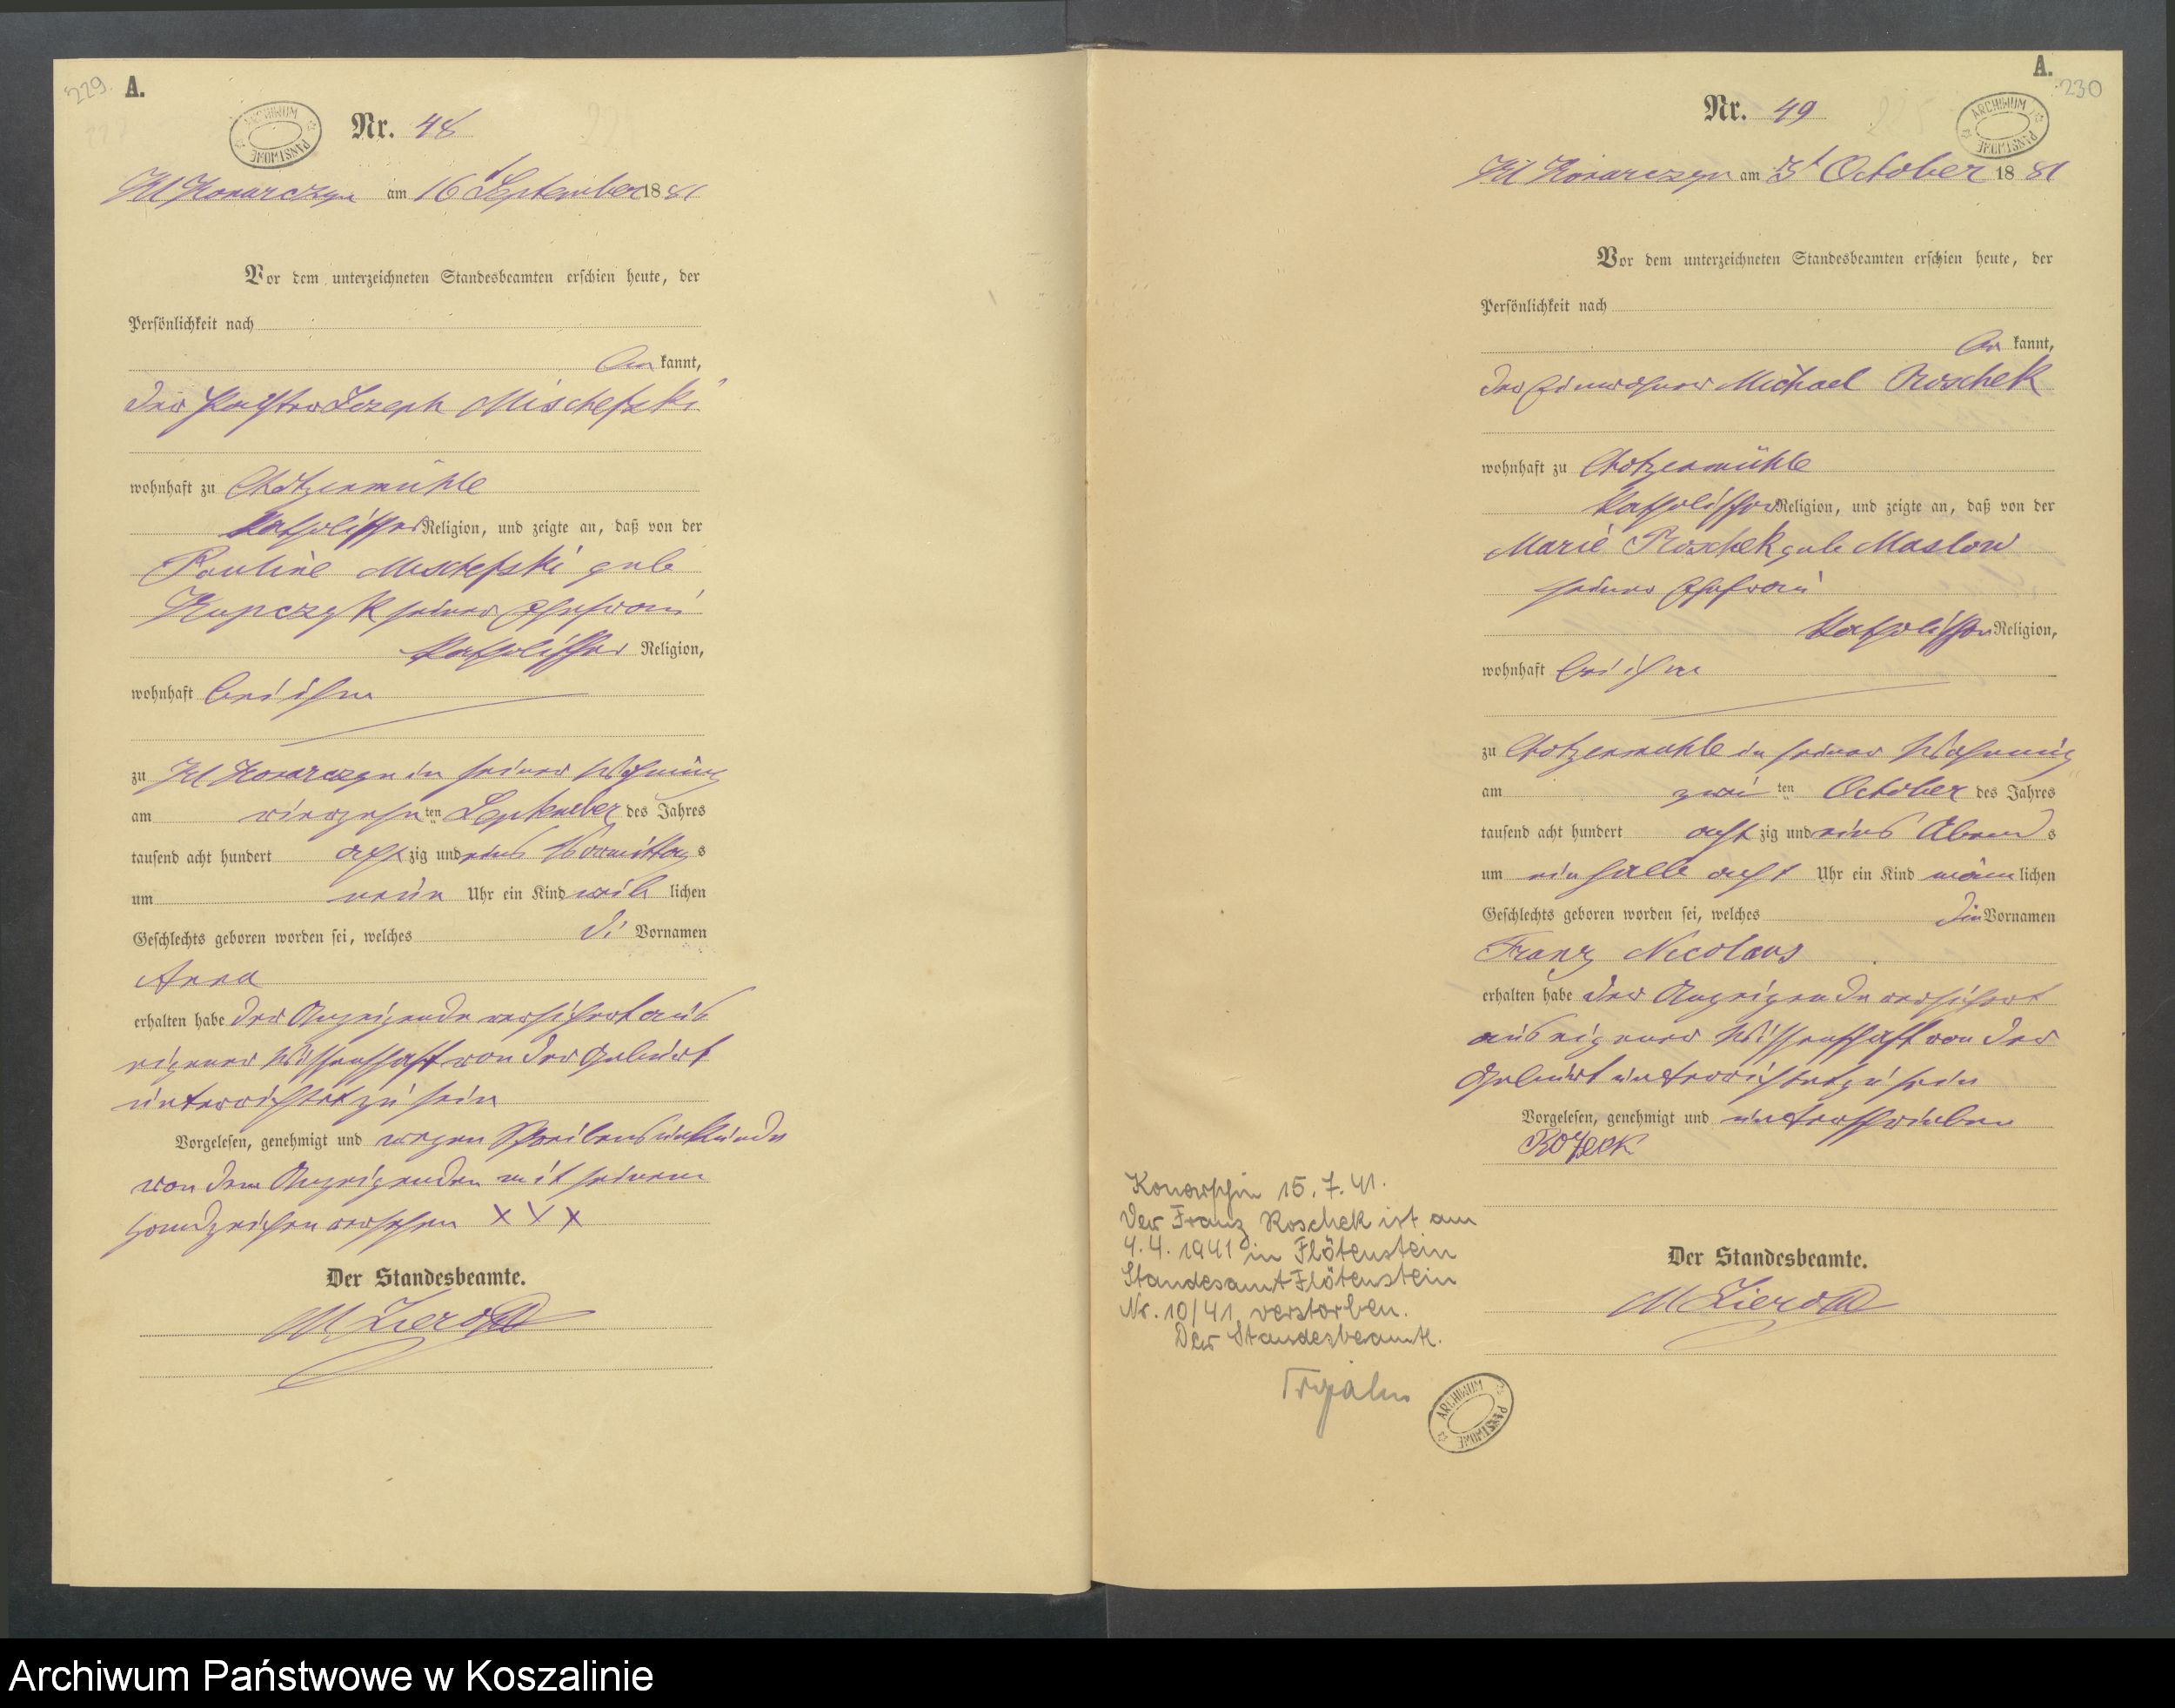 229.
A.
ARCHIWUM PAŃSTWOWE
Nr. 48
Kl Konarczyn am 16 September 1881
Vor dem unterzeichneten Standesbeamten erschien heute, der
Persönlichkeit nach
be kannt,
der Pächter Joseph Mischefzki
wohnhaft zu Chotzenmühle
katholischer Religion, und zeigte an, daß von der
Pauline Mischefski geb
Kupczyk seiner Ehefrau
katholischer Religion,
wohnhaft bei ihm
zu Kl Konarczyn in seiner Wohnung
am vierzehnten September des Jahres
tausend acht hundert achtzig und eins Vormittags
um neun Uhr ein Kind weiblichen
Geschlechts geboren worden sei, welches di Vornamen
Anna
erhalten habe der Anzeigende versichert aus
eigener Wissenschaft von der Geburt
unterrichtet zu sein
Vorgelesen, genehmigt und wegen Schreibensunkunde
von dem Anzeigenden mit seinem
Handzeichen versehen X X X
Der Standesbeamte.
A.
230
ARCHIWUM PAŃSTWOWE
Nr. 49
Kl Konarczyn am 3t October 1881
Vor dem unterzeichneten Standesbeamten erschien heute, der
Persönlichkeit nach
be kannt,
der Einwohner Michael Roschek
wohnhaft zu Chotzenmühle
katholischer Religion, und zeigte an, daß von der
Marie Roschek geb Maslow
seiner Ehefrau
katholischer Religion,
wohnhaft bei ihm
zu Chotzenmuhle in seiner Wohnung
am zwei ten October des Jahres
tausend acht hundert achtzig und eins Abends
um ein halb acht Uhr ein Kind männlichen
Geschlechts geboren worden sei, welches die Vornamen
Franz Nicolaus
erhalten habe der Anzeigende versichert
aus eigener Wissenschaft von der
Geburt unterrichtet zu sein
Vorgelesen, genehmigt und unterschrieben
Der Standesbeamte.
15.7.41.
Der Franz Roschek ist am
4.4.1941 in Flötenstein
Standesamt Flötenstein
Nr. 10/41 verstorben.
Der Standesbeamte.
ARCHIWUM PAŃSTWOWE
Archiwum Państwowe w Koszalinie